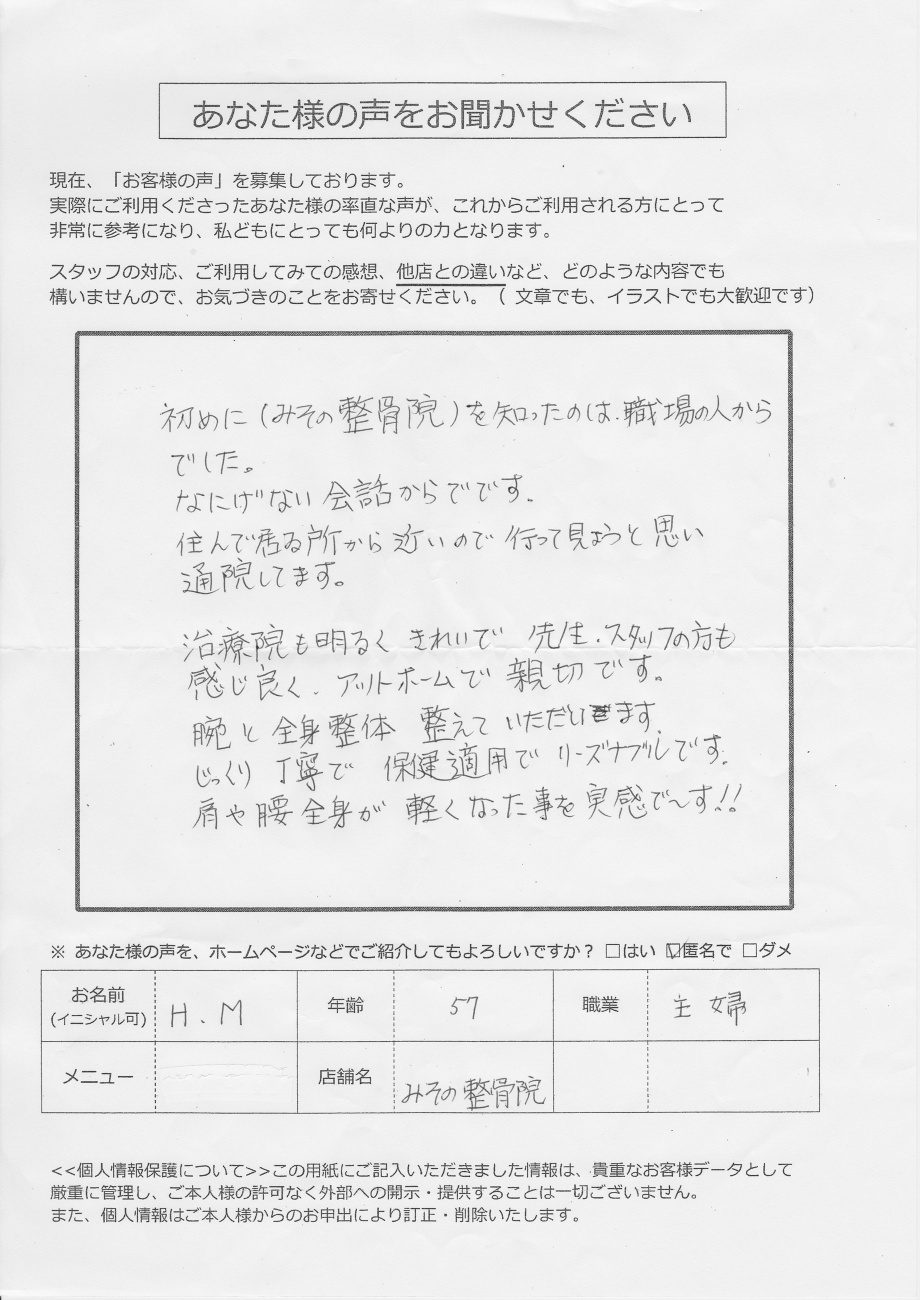 あなた様の声をお聞かせください
現在、「お客様の声」を募集しております。
実際にご利用くださったあなた様の率直な声が、これからご利用される方にとって
非常に参考になり、私どもにとっても何よりの力となります。
スタッフの対応、ご利用してみての感想、他店との違いなど、どのような内容でも
構いませんので、お気づきのことをお寄せください。（ 文章でも、イラストでも大歓迎です）
初めに(みその整骨院)を知ったのは、職場の人から
でした。
なにげない会話からでです。
住んで居る所から近いので行って見ようと思い
通院してます。
治療院も明るくきれいで 先生、スタッフの方も
感じ良く、アットホームで親切です。
腕と全身整体 整えていただいてます。
じっくり丁寧で 保健適用でリーズナブルです。
肩や腰全身が軽くなった事を実感で〜す!!
※ あなた様の声を、ホームページなどでご紹介してもよろしいですか？ □はい ☑匿名で □ダメ
お名前 H.M 年齢 57 職業 主婦
(イニシャル可)
メニュー 店舗名 みその整骨院
<<個人情報保護について>>この用紙にご記入いただきました情報は、貴重なお客様データとして
厳重に管理し、ご本人様の許可なく外部への開示・提供することは一切ございません。
また、個人情報はご本人様からのお申出により訂正・削除いたします。